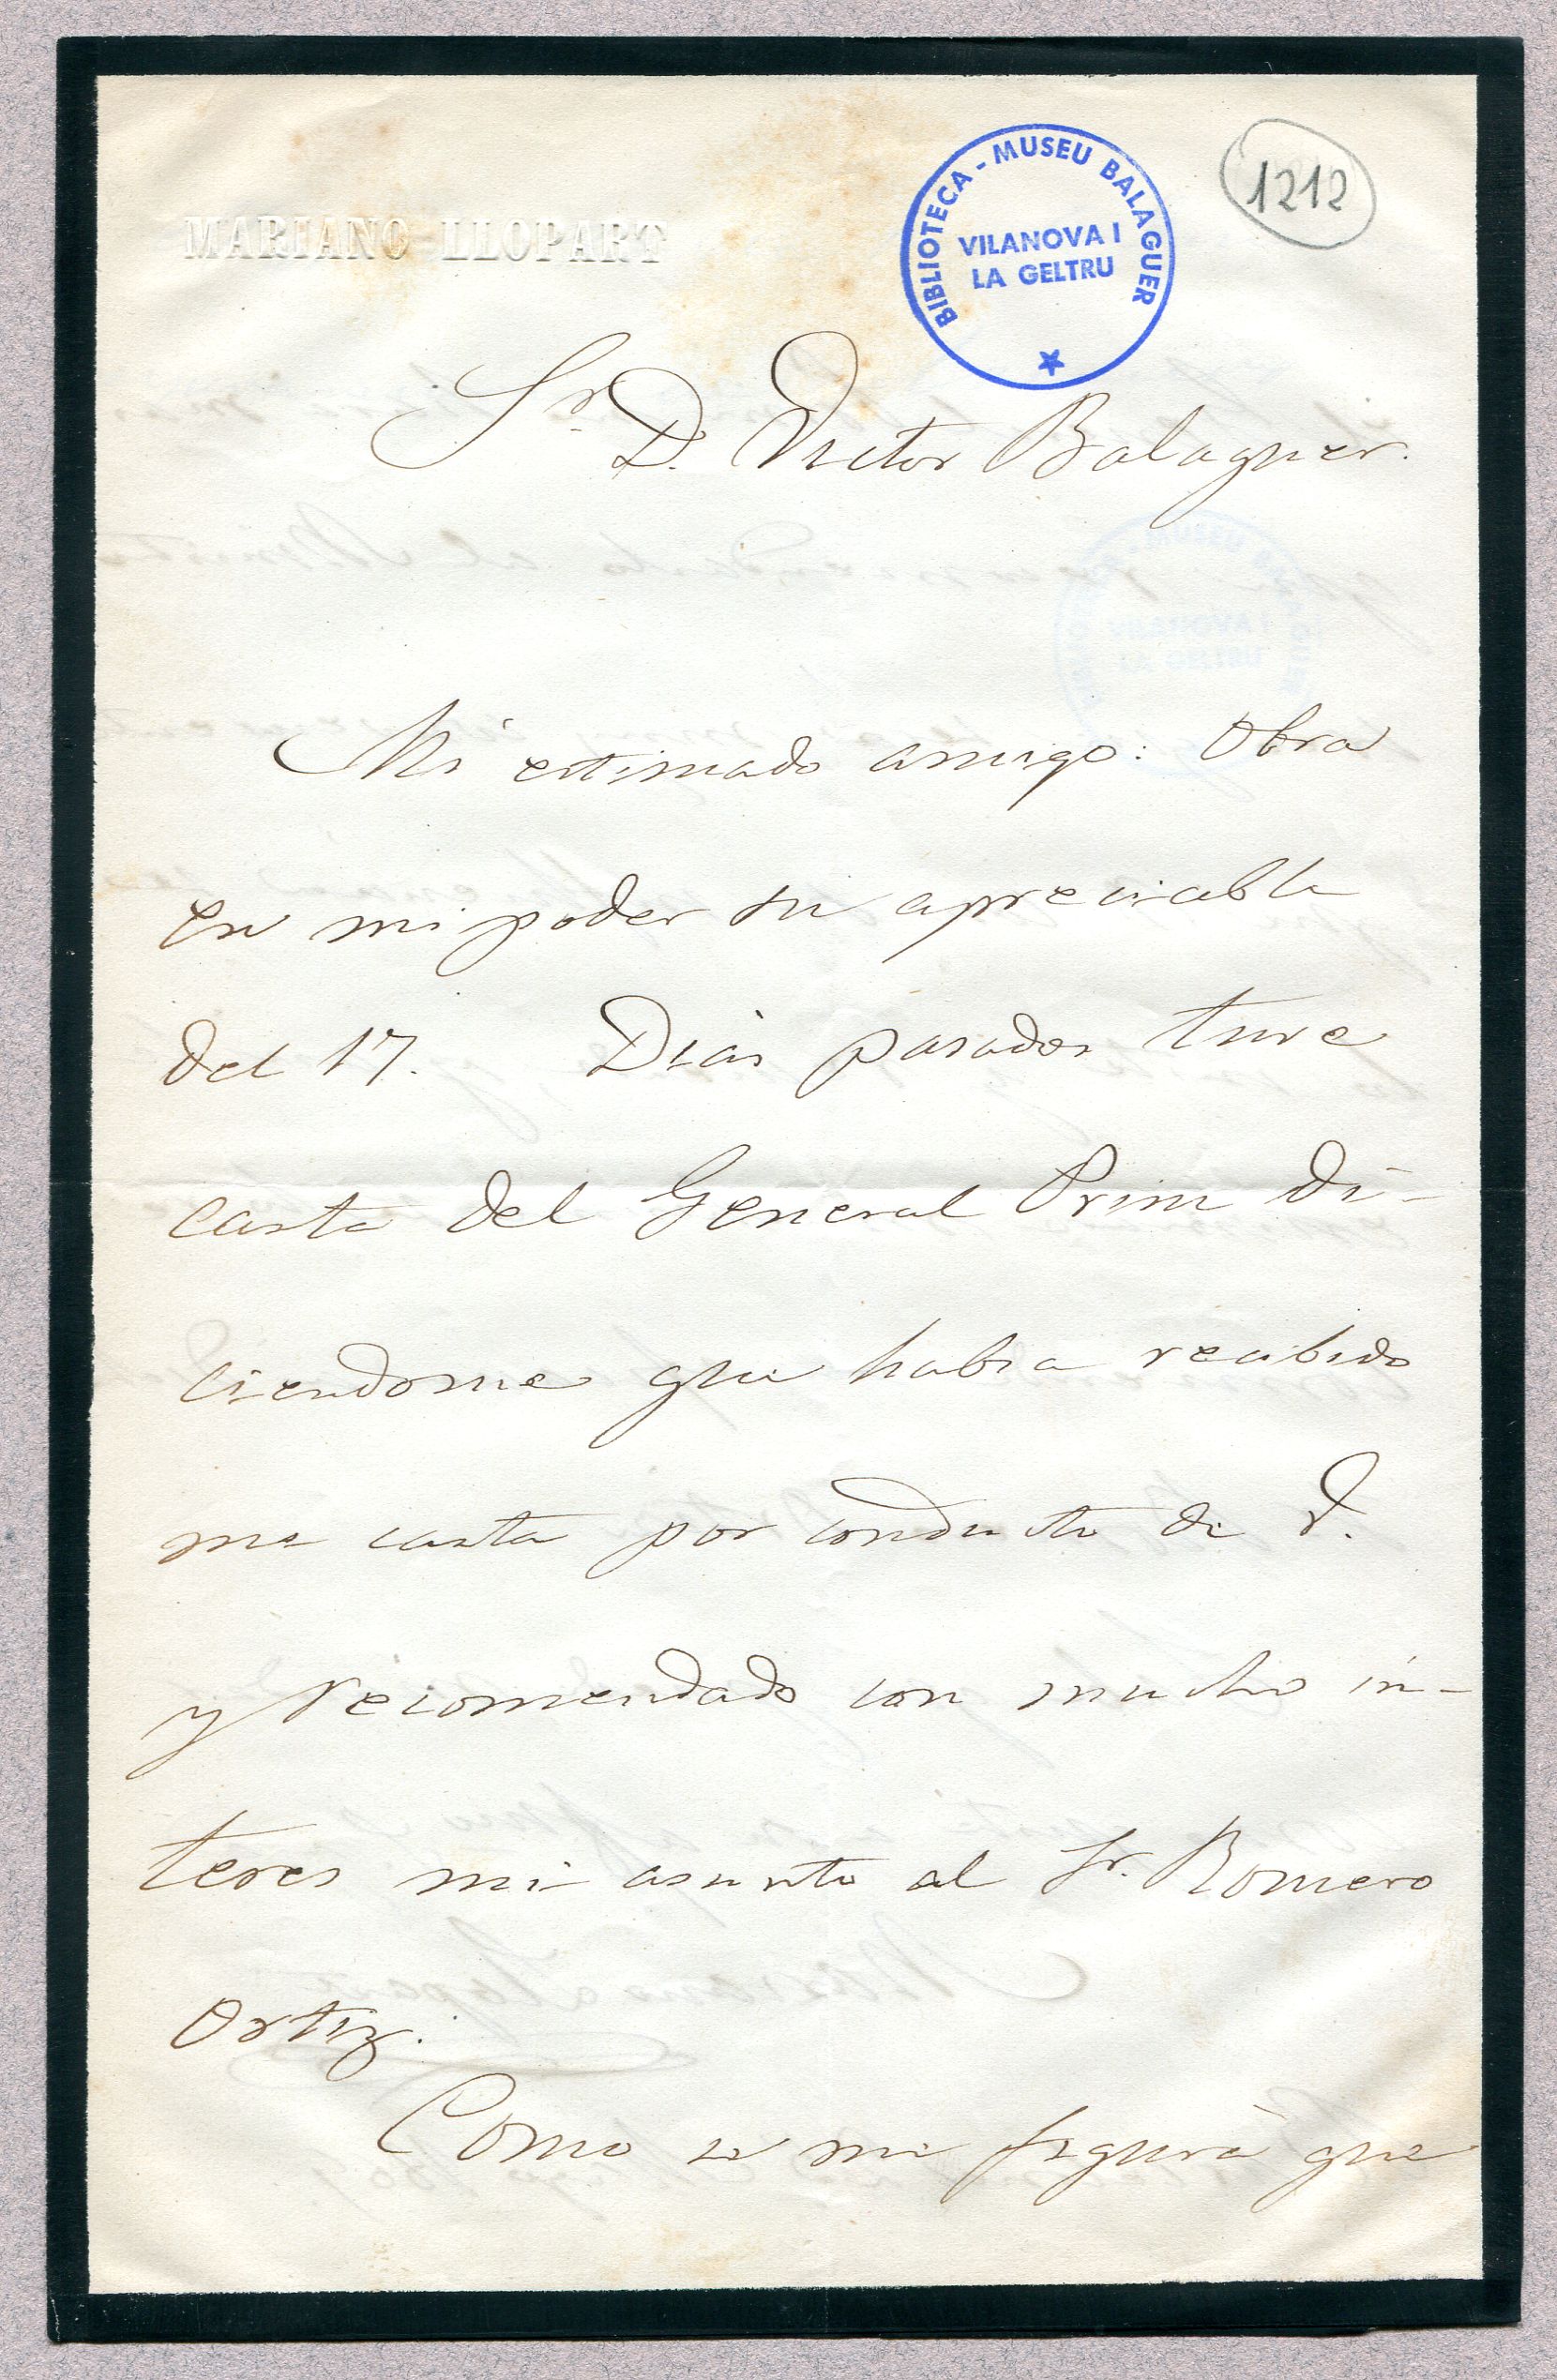 MARIANO LLOPART
BIBLIOTECA - MUSEU BALAGUER
VILANOVA I
LA GELTRU
1212
Sr. D. Victor Balaguer.
Mi estimado amigo: Obra
en mi poder su apreciable
del 17. Dias pasados tuve
carta del General Prim di-
ciendome que habia recibido
me carta por conducto de V.
y recomendado con mucho in-
teres mi asunto al Sr. Romero
Ortiz.
Como se me figura que